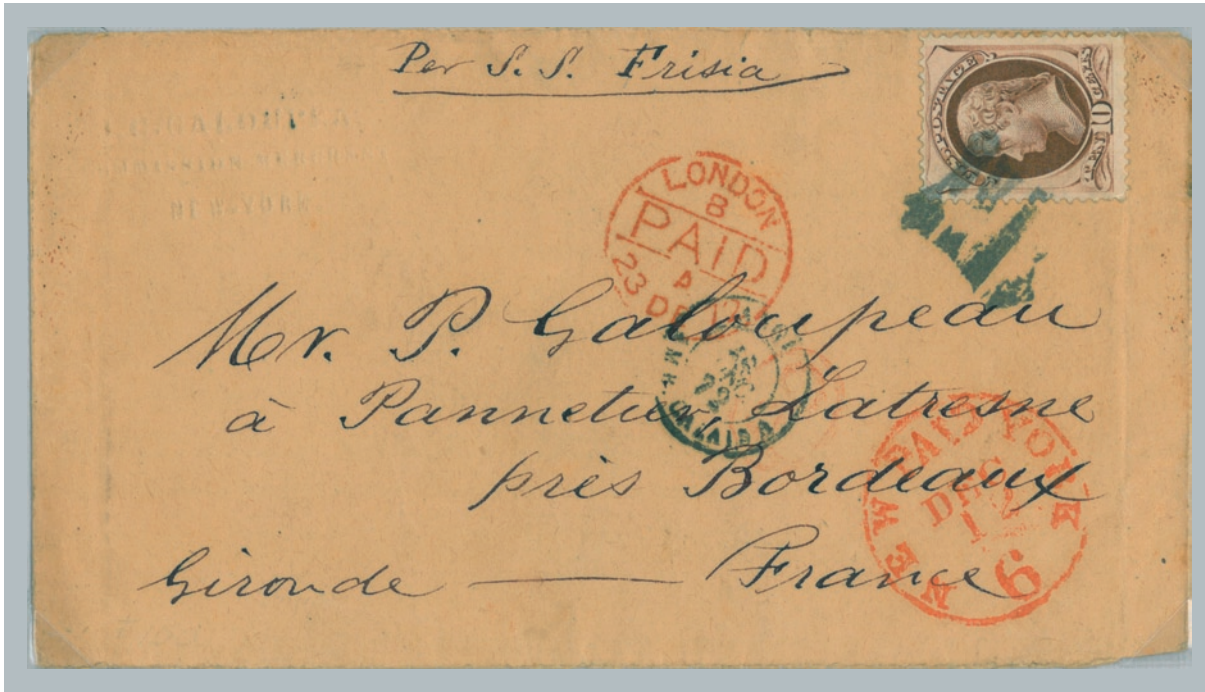 Per S. S. Frisia
U.S. POSTAGE
NEW-YORK
LONDON
B
PAID
23 DE
Mr. P. Galoupeau
à Pannetier, Latresne
près Bordeaux
Gironde — France
NEW YORK
PAID
DEC
12
6